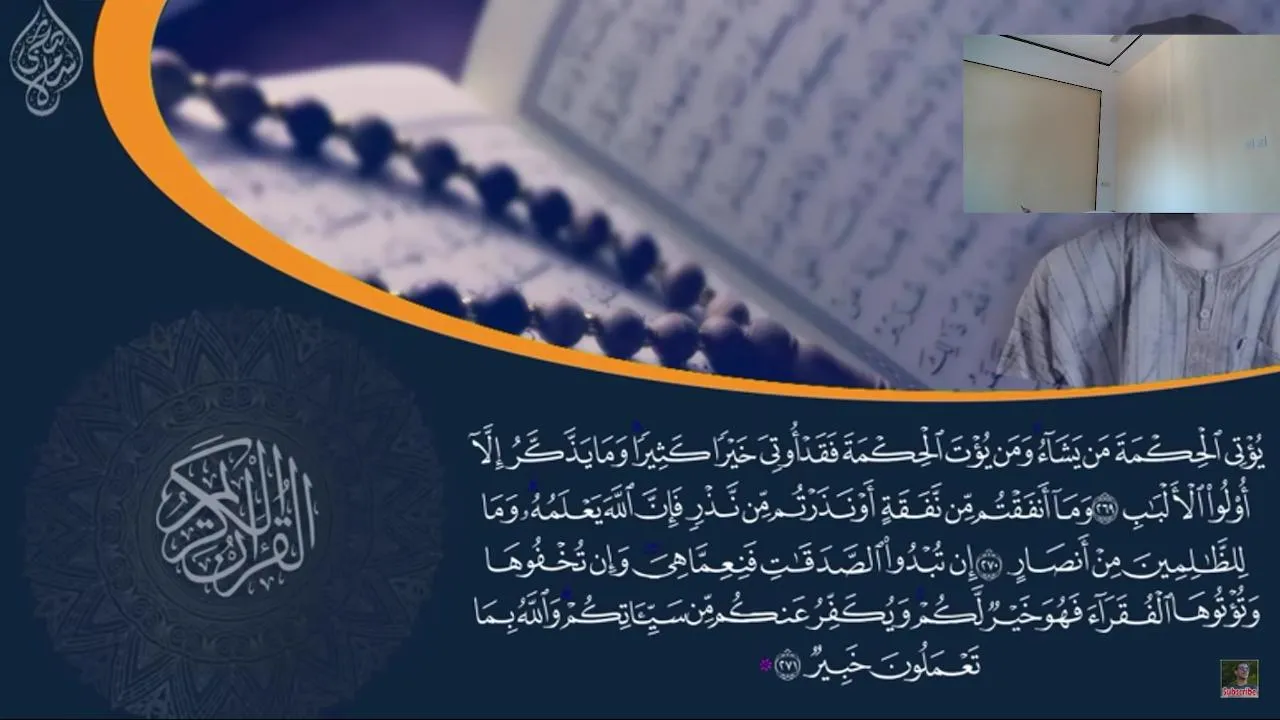 القرآن الكريم
يُؤْتِى ٱلْحِكْمَةَ مَن يَشَآءُ ۚ وَمَن يُؤْتَ ٱلْحِكْمَةَ فَقَدْ أُوتِىَ خَيْرًا كَثِيرًا ۗ وَمَا يَذَّكَّرُ إِلَّآ
أُو۟لُوا۟ ٱلْأَلْبَٰبِ ٢٦٩ وَمَآ أَنفَقْتُم مِّن نَّفَقَةٍ أَوْ نَذَرْتُم مِّن نَّذْرٍ فَإِنَّ ٱللَّهَ يَعْلَمُهُۥ ۗ وَمَا
لِلظَّٰلِمِينَ مِنْ أَنصَارٍ ٢٧٠ إِن تُبْدُوا۟ ٱلصَّدَقَٰتِ فَنِعِمَّا هِىَ ۖ وَإِن تُخْفُوهَا
وَتُؤْتُوهَا ٱلْفُقَرَآءَ فَهُوَ خَيْرٌ لَّكُمْ ۚ وَيُكَفِّرُ عَنكُم مِّن سَيِّـَٔاتِكُمْ ۗ وَٱللَّهُ بِمَا
تَعْمَلُونَ خَبِيرٌ ٢٧١ *
Subscribe